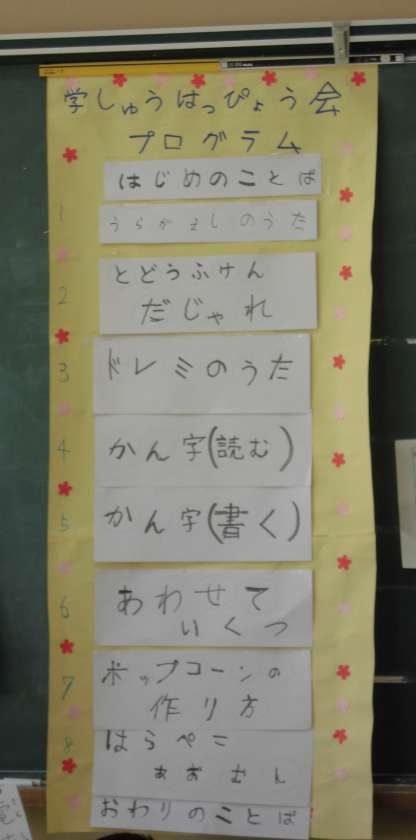 学しゅうはっぴょう会
プログラム
はじめのことば
1 うらかえしのうた
2 とどうふけん
だじゃれ
3 ドレミのうた
4 かん字(読む)
5 かん字(書く)
6 あわせて
いくつ
7 ポップコーンの
作り方
8 はらぺこ
あおむし
おわりのことば